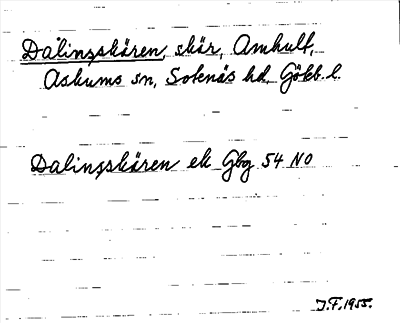 Dalingskären, skär, Amhult,
Askums sn, Sotenäs hd, Göteb. l.
Dalingskären ek Gbg 54 NO
J.F. 1955.